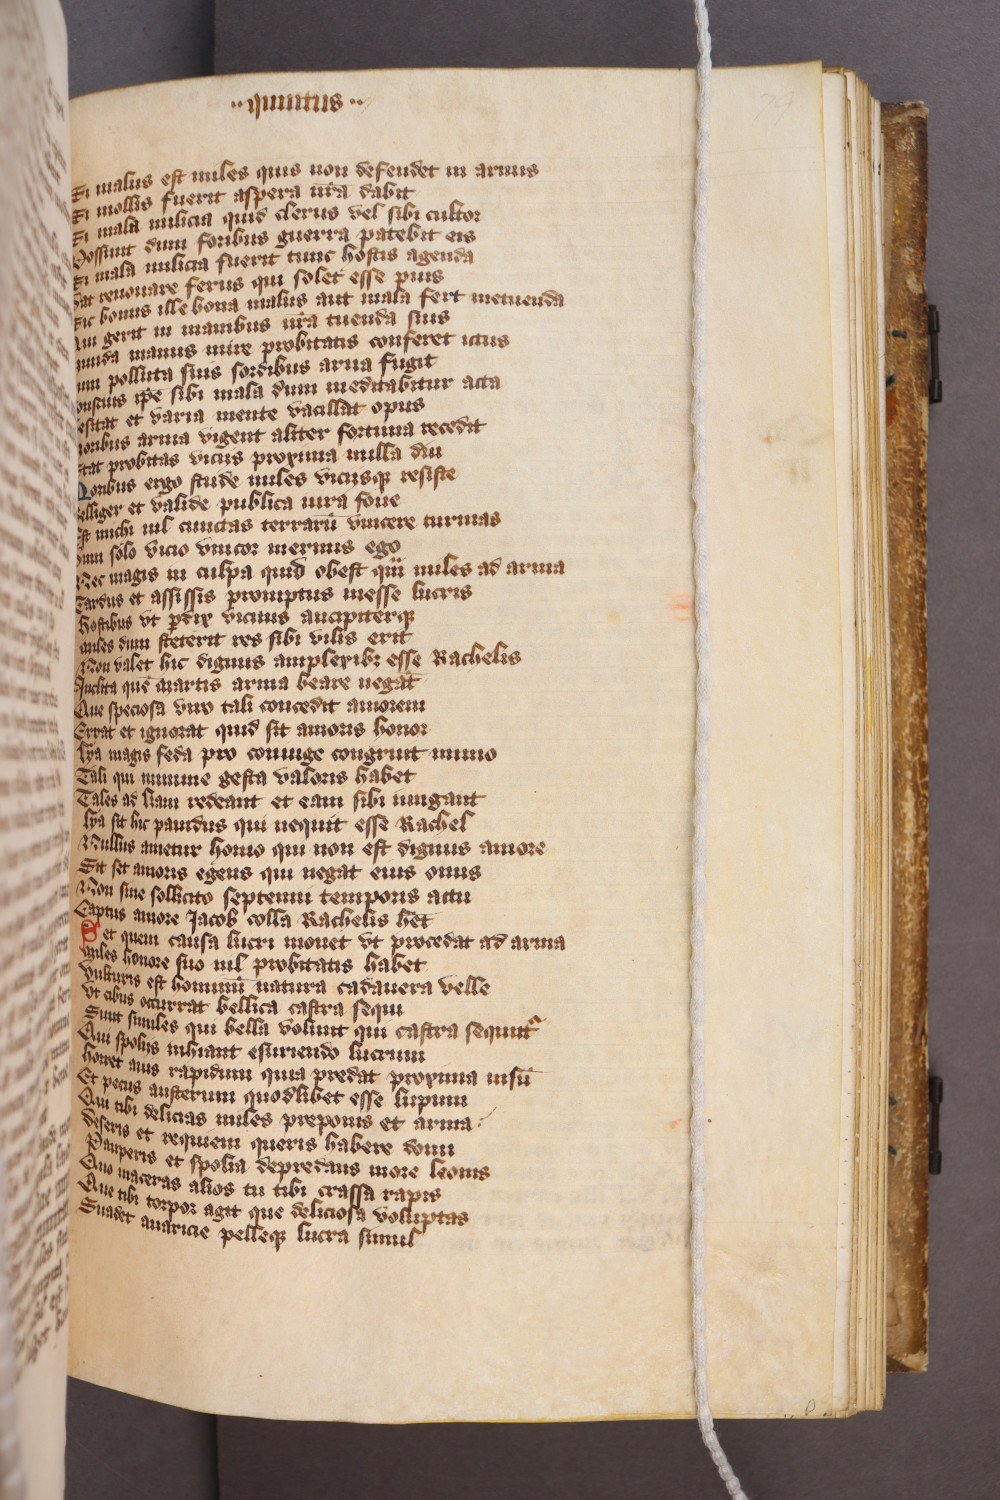 ·· quintus ··
Si malus est miles quis non defendet in armis
Si mollis fuerit aspera nra dabit
Si mala milicia quid clerus vel sibi cultor
Possint dum foribus guerra patebit eis
Si mala milicia fuerit tunc hostis agenda
renouare ferus qui solet esse pius
Sic bonus ille bona malus aut mala fert metuenda
gerit in manibus nra tuenda suis
munda manus mire probitatis conferet ictus
polluta suis sordibus arma fugit
ipe sibi mala dum meditabitur acta
et varia mente vacillat opus
arma vigent aliter fortuna recedit
Stat probitas viciis proxima nulla diu
ergo stude miles viciisq resiste
Belliger et valide publica iura foue
Est michi nil cunctas terraru vincere turmas
solo vicio vincor inermis ego
Nec magis in culpa quid obest qui miles ad arma
Tardus et assissis promptus inesse lucris
Hostibus vt pdix vicinus ancipiterq
miles dum steterit res sibi vilis erit
Non valet hic dignus amplexib3 esse Rachelis
Inclita que martis arma beare negat
Que speciosa viro tali concedit amorem
Errat et ignorat quid sit amoris honor
lya magis feda pro coniuge congruit immo
Tali qui minime gesta valoris habet
Tales ad liam redeant et eam sibi iungant
lya sit hic paridus qui nequit esse Rachel
Nullus ametur homo qui non est dignus amore
Sit set amoris egens qui negat eius onus
Non sine sollicito septenni temporis actu
Captus amore Jacob colla Rachelis het
Set quem causa lucri mouet vt procedat ad arma
miles honore suo nil probitatis habet
vulturis est hominu natura cadauera velle
vt cibus occurrat bellica castra sequi
Sunt similes qui bella volunt qui castra sequunt
Qui spoliis inhiant esuriendo lucrum
horret auis rapidum quia predat proxima nisu
Et pecus austerum quodlibet esse lupum
Qui tibi delicias miles preponis et arma
deseris et requiem queris habere domi
Pauperis et spolia depredans more leonis
Quo maceras alios tu tibi crassa rapis
Que tibi torpor agit que deliciosa voluptas
Suadet auaricie pelleq lucra simul